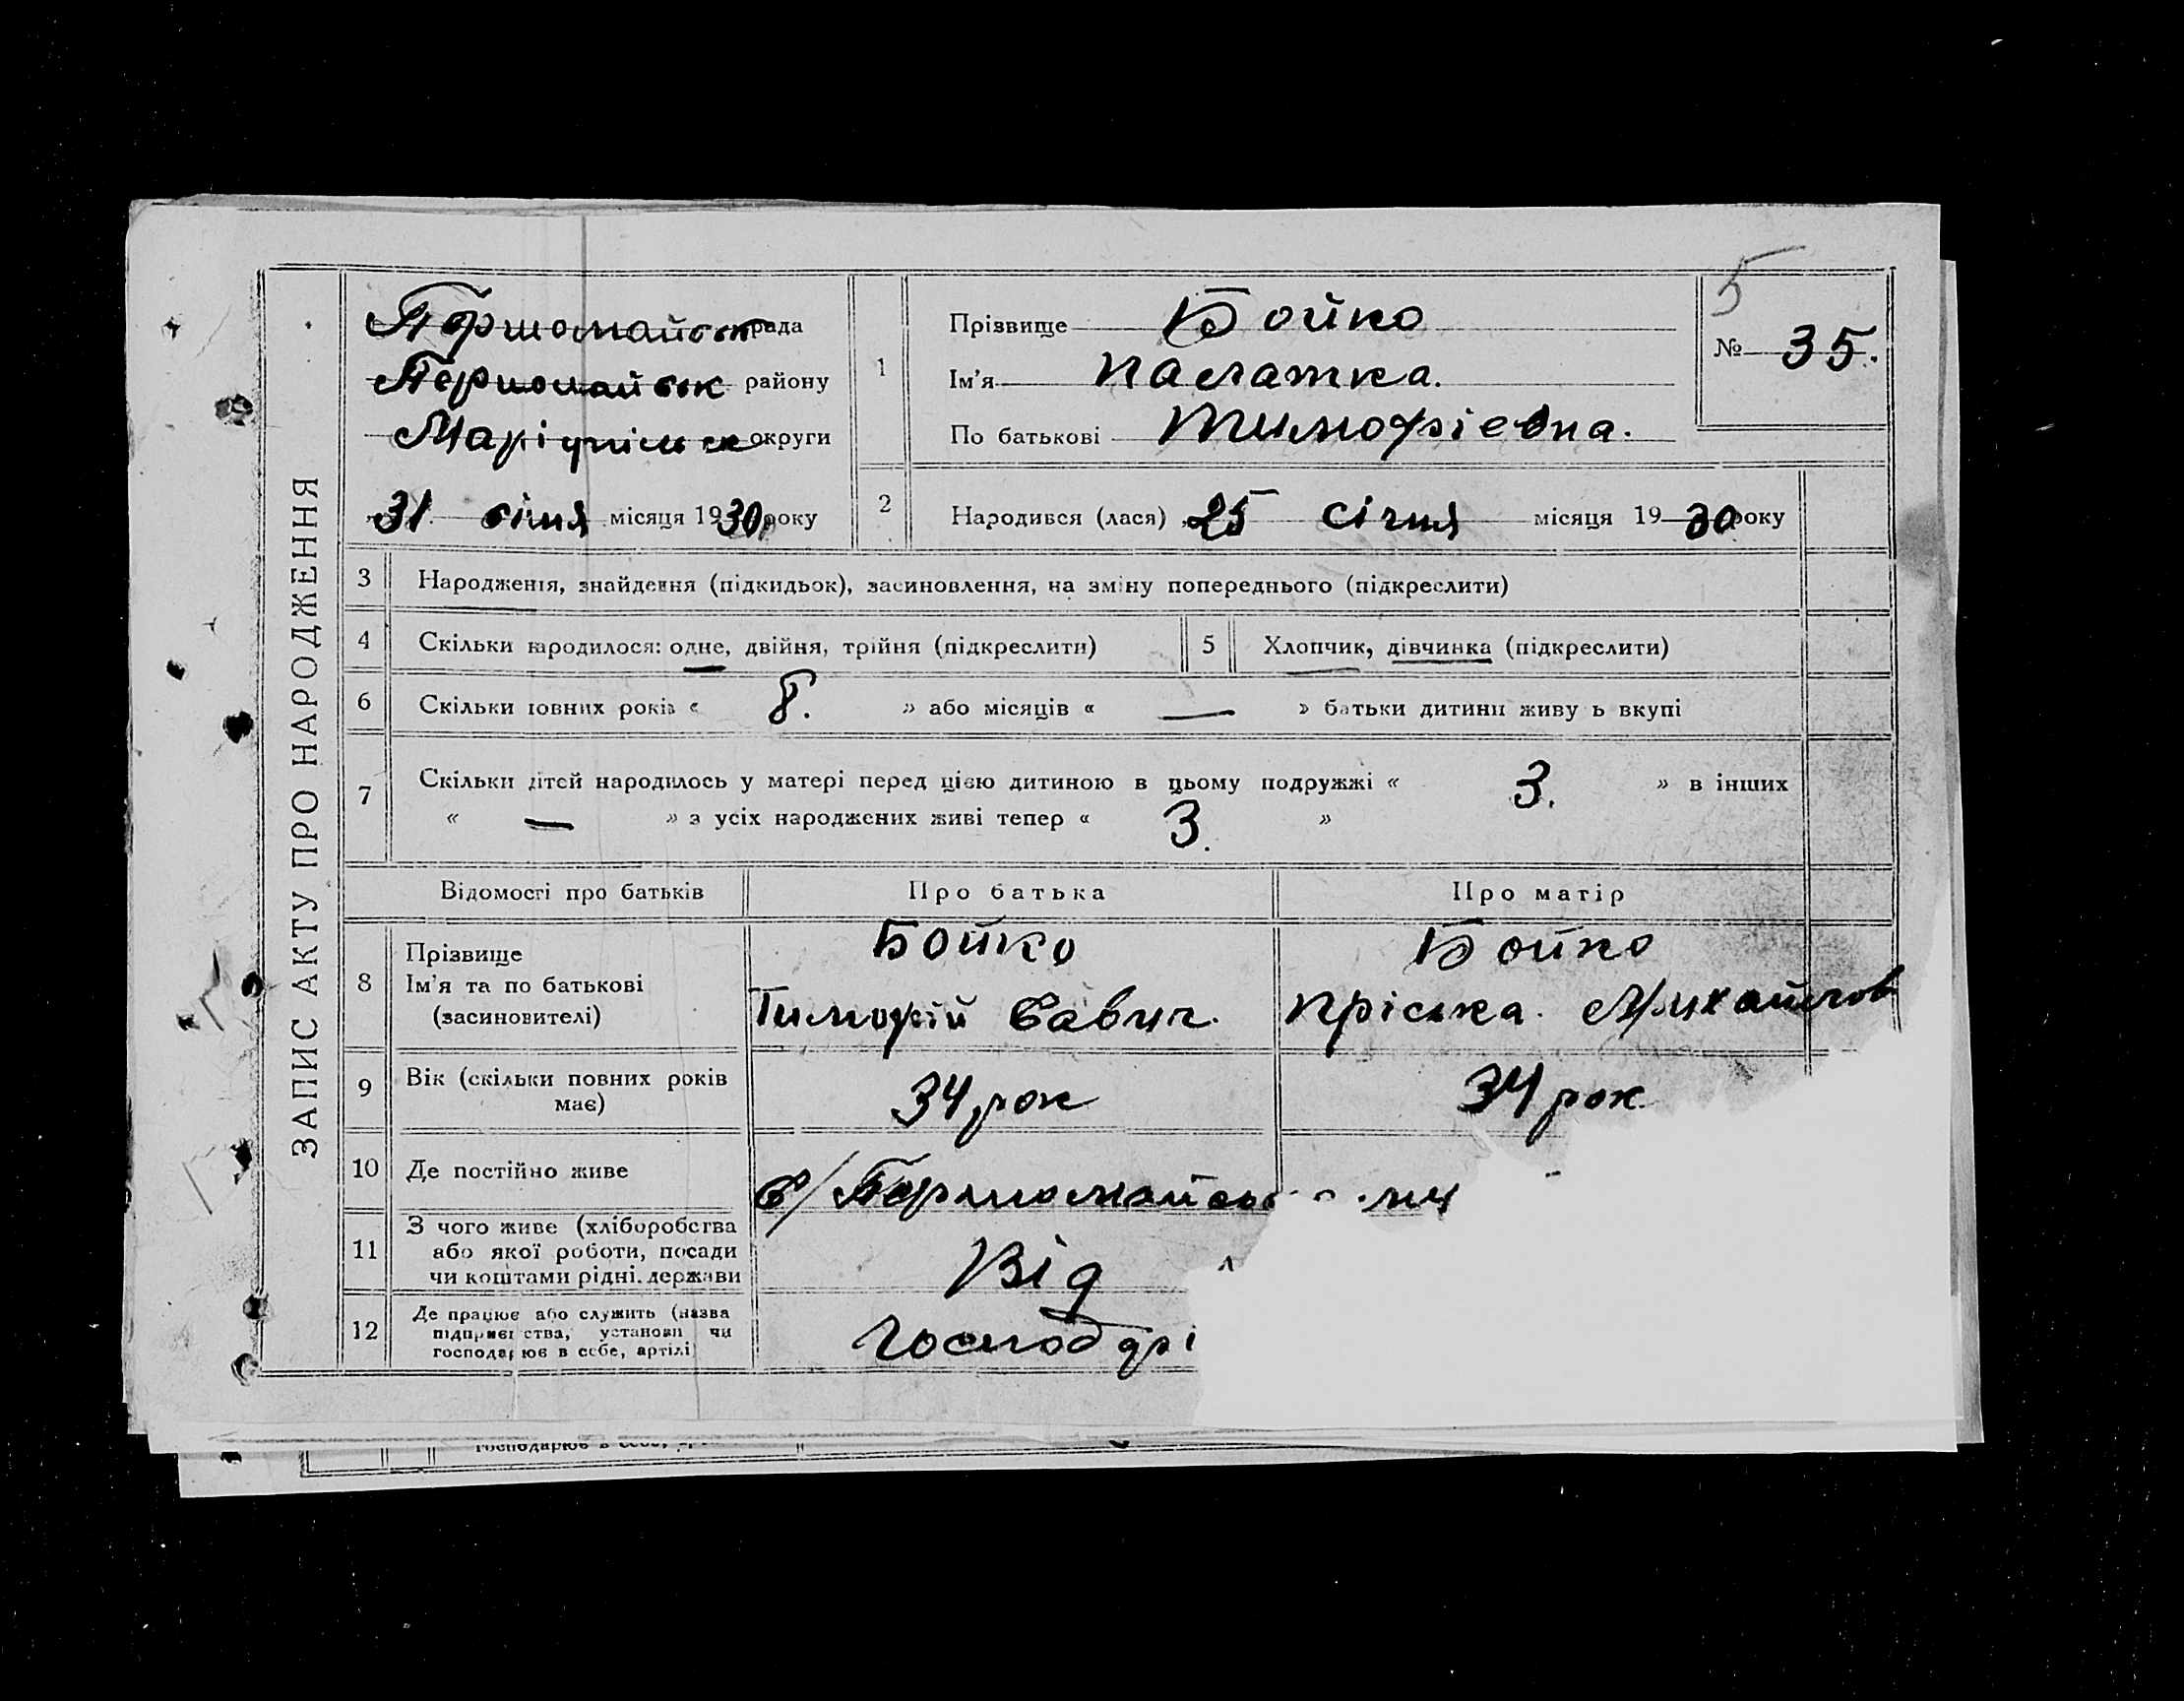 ЗАПИС АКТУ ПРО НАРОДЖЕННЯ
Першомайськ рада
Першомайськ району
Маріупільськ округи
31 січня місяця 1930 року
1
Прізвище Бойко
Ім'я Палажка.
По батькові Тимофієвна.
5
№ 35.
2 Народився (лася) 25 січня місяця 1930 року
3 Народження, знайдення (підкидьок), засиновлення, на зміну попереднього (підкреслити)
4 Скільки народилося: одне, двійня, трійня (підкреслити) 5 Хлопчик, дівчинка (підкреслити)
6 Скільки повних років « 8. » або місяців « — » батьки дитини живуть вкупі
7 Скільки дітей народилось у матері перед цією дитиною в цьому подружжі « 3. » в інших
« — » з усіх народжених живі тепер « 3. »
Відомості про батьків Про батька Про матір
8 Прізвище Бойко Бойко
Ім'я та по батькові
(засиновителі) Тимофій Савич. Пріська. Михайлов
9 Вік (скільки повних років
має) 34 рок 34 рок
10 Де постійно живе С/Першомайськ
11 З чого живе (хліборобства
або якої роботи, посади
чи коштами рідні. держави Від
12 Де працює або служить (назва
підприємства, установи чи
господарює в себе, артілі Господарі
господарює в себе,